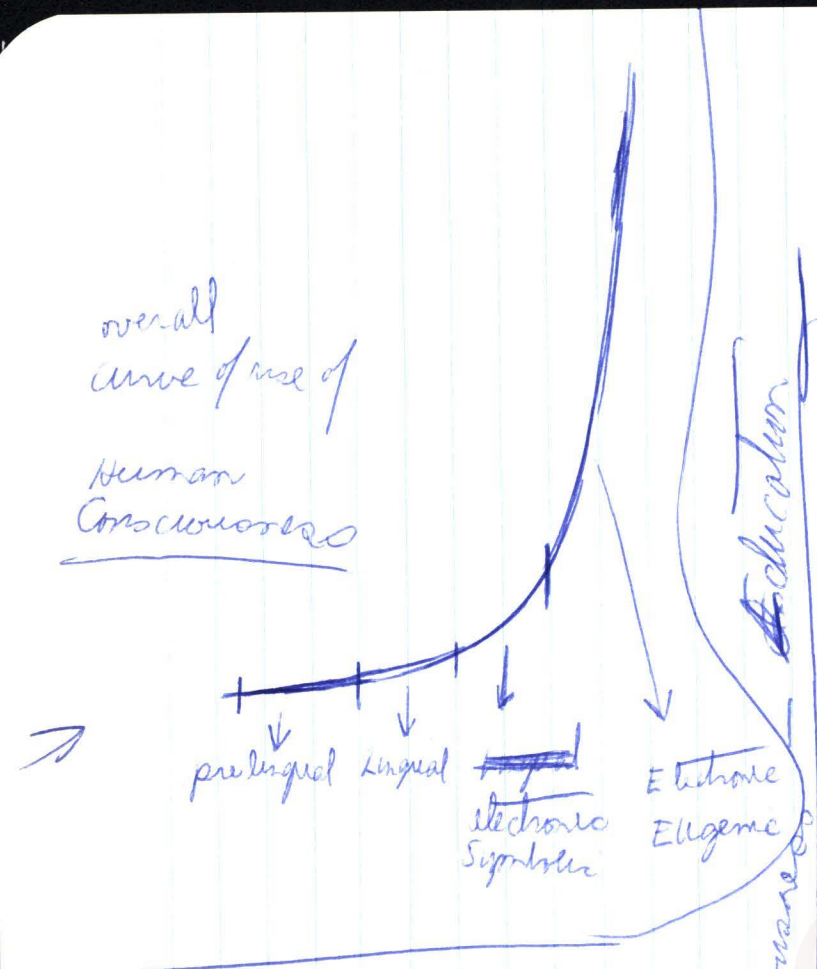 overall
curve of use of
Human
Consciousness
prelingual Lingual
electronic
Symbolic
Electronic
Eugenic
Education